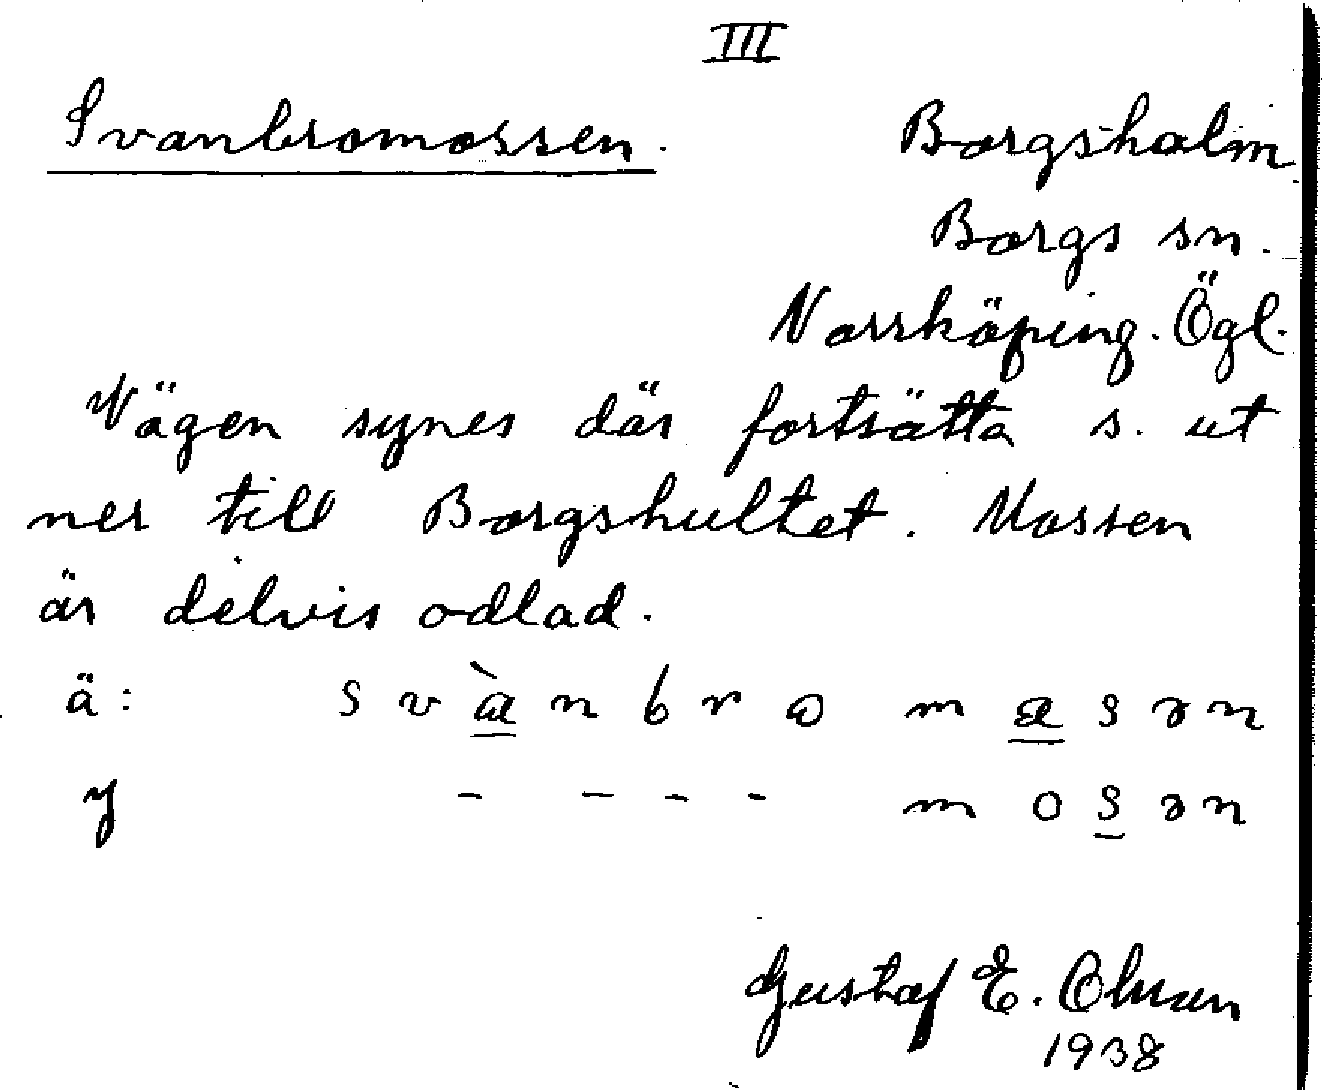 III
Svanbromossen.
Borgsholm
Borgs sn.
Norrköping. Ögl.
Vägen synes där fortsätta s. ut
ner till Borgshultet. Mossen
är delvis odlad.
ä: svànbrɷ masən
y - - - - mosən
Gustaf E.
1938